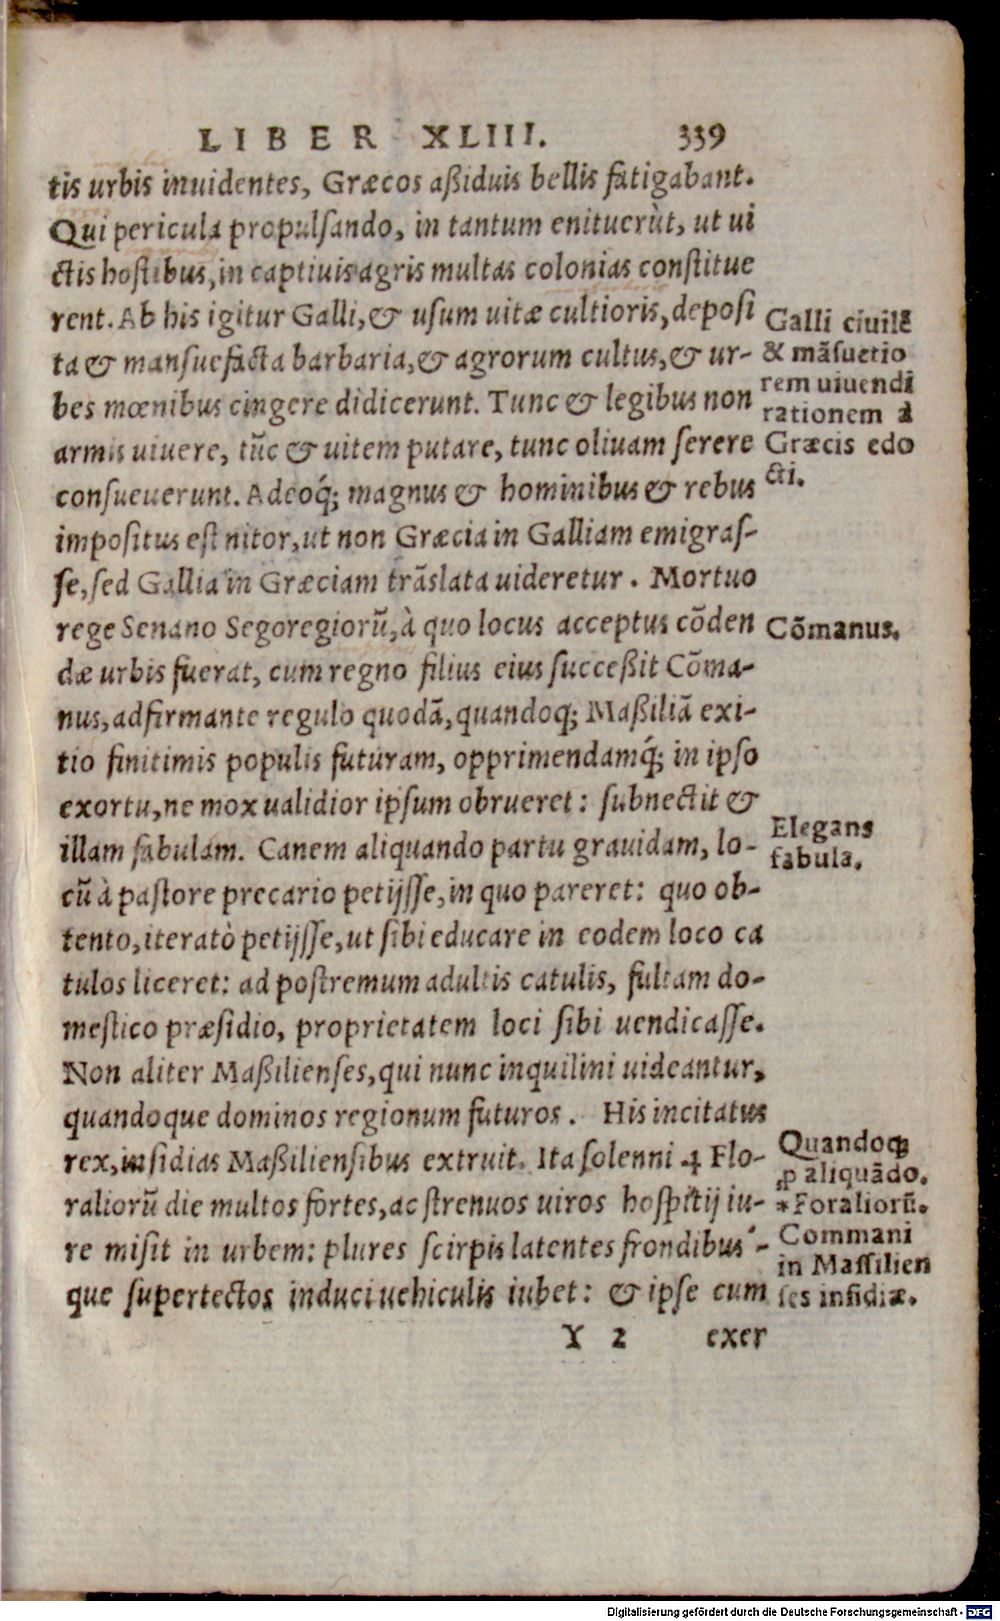 LIBER XLIII. 339
tis urbis inuidentes, Græcos aßiduis bellis fatigabant.
Qui pericula propulsando, in tantum enituerùt, ut ui
ctis hostibus, in captiuis agris multas colonias constitue
rent. Ab his igitur Galli, & usum uitæ cultioris, deposi
ta & mansuefacta barbaria, & agrorum cultus, & ur-
bes mœnibus cingere didicerunt. Tunc & legibus non
armis uiuere, tũc & uitem putare, tunc oliuam serere
consueuerunt. Adeoq́; magnus & hominibus & rebus
impositus est nitor, ut non Græcia in Galliam emigras-
se, sed Gallia in Græciam trãslata uideretur. Mortuo
rege Senano Segoregiorũ, à quo locus acceptus cõden
dæ urbis fuerat, cum regno filius eius succeßit Cõma-
nus, adfirmante regulo quodã, quandoq; Maßiliã exi-
tio finitimis populis futuram, opprimendamq́; in ipso
exortu, ne mox ualidior ipsum obrueret: subnectit &
illam fabulam. Canem aliquando partu grauidam, lo-
cũ à pastore precario petijsse, in quo pareret: quo ob-
tento, iteratò petijsse, ut sibi educare in eodem loco ca
tulos liceret: ad postremum adultis catulis, fultam do-
mestico præsidio, proprietatem loci sibi uendicasse.
Non aliter Maßilienses, qui nunc inquilini uideantur,
quandoque dominos regionum futuros. His incitatus
rex, insidias Maßiliensibus extruit. Ita solenni 4 Flo-
raliorũ die multos fortes, ac strenuos uiros hospitij iu-
re misit in urbem: plures scirpis latentes frondibus'-
que supertectos induci uehiculis iubet: & ipse cum
Y 2 exer
Galli ciuilẽ
& mãsuetio
rem uiuendi
rationem à
Græcis edo
cti.
Cõmanus.
Elegans
fabula.
Quandoq;
ꝓ aliquãdo.
*Foraliorũ.
Commani
in Massilien
ses insidiæ.
Digitalisierung gefördert durch die Deutsche Forschungsgemeinschaft - DFG